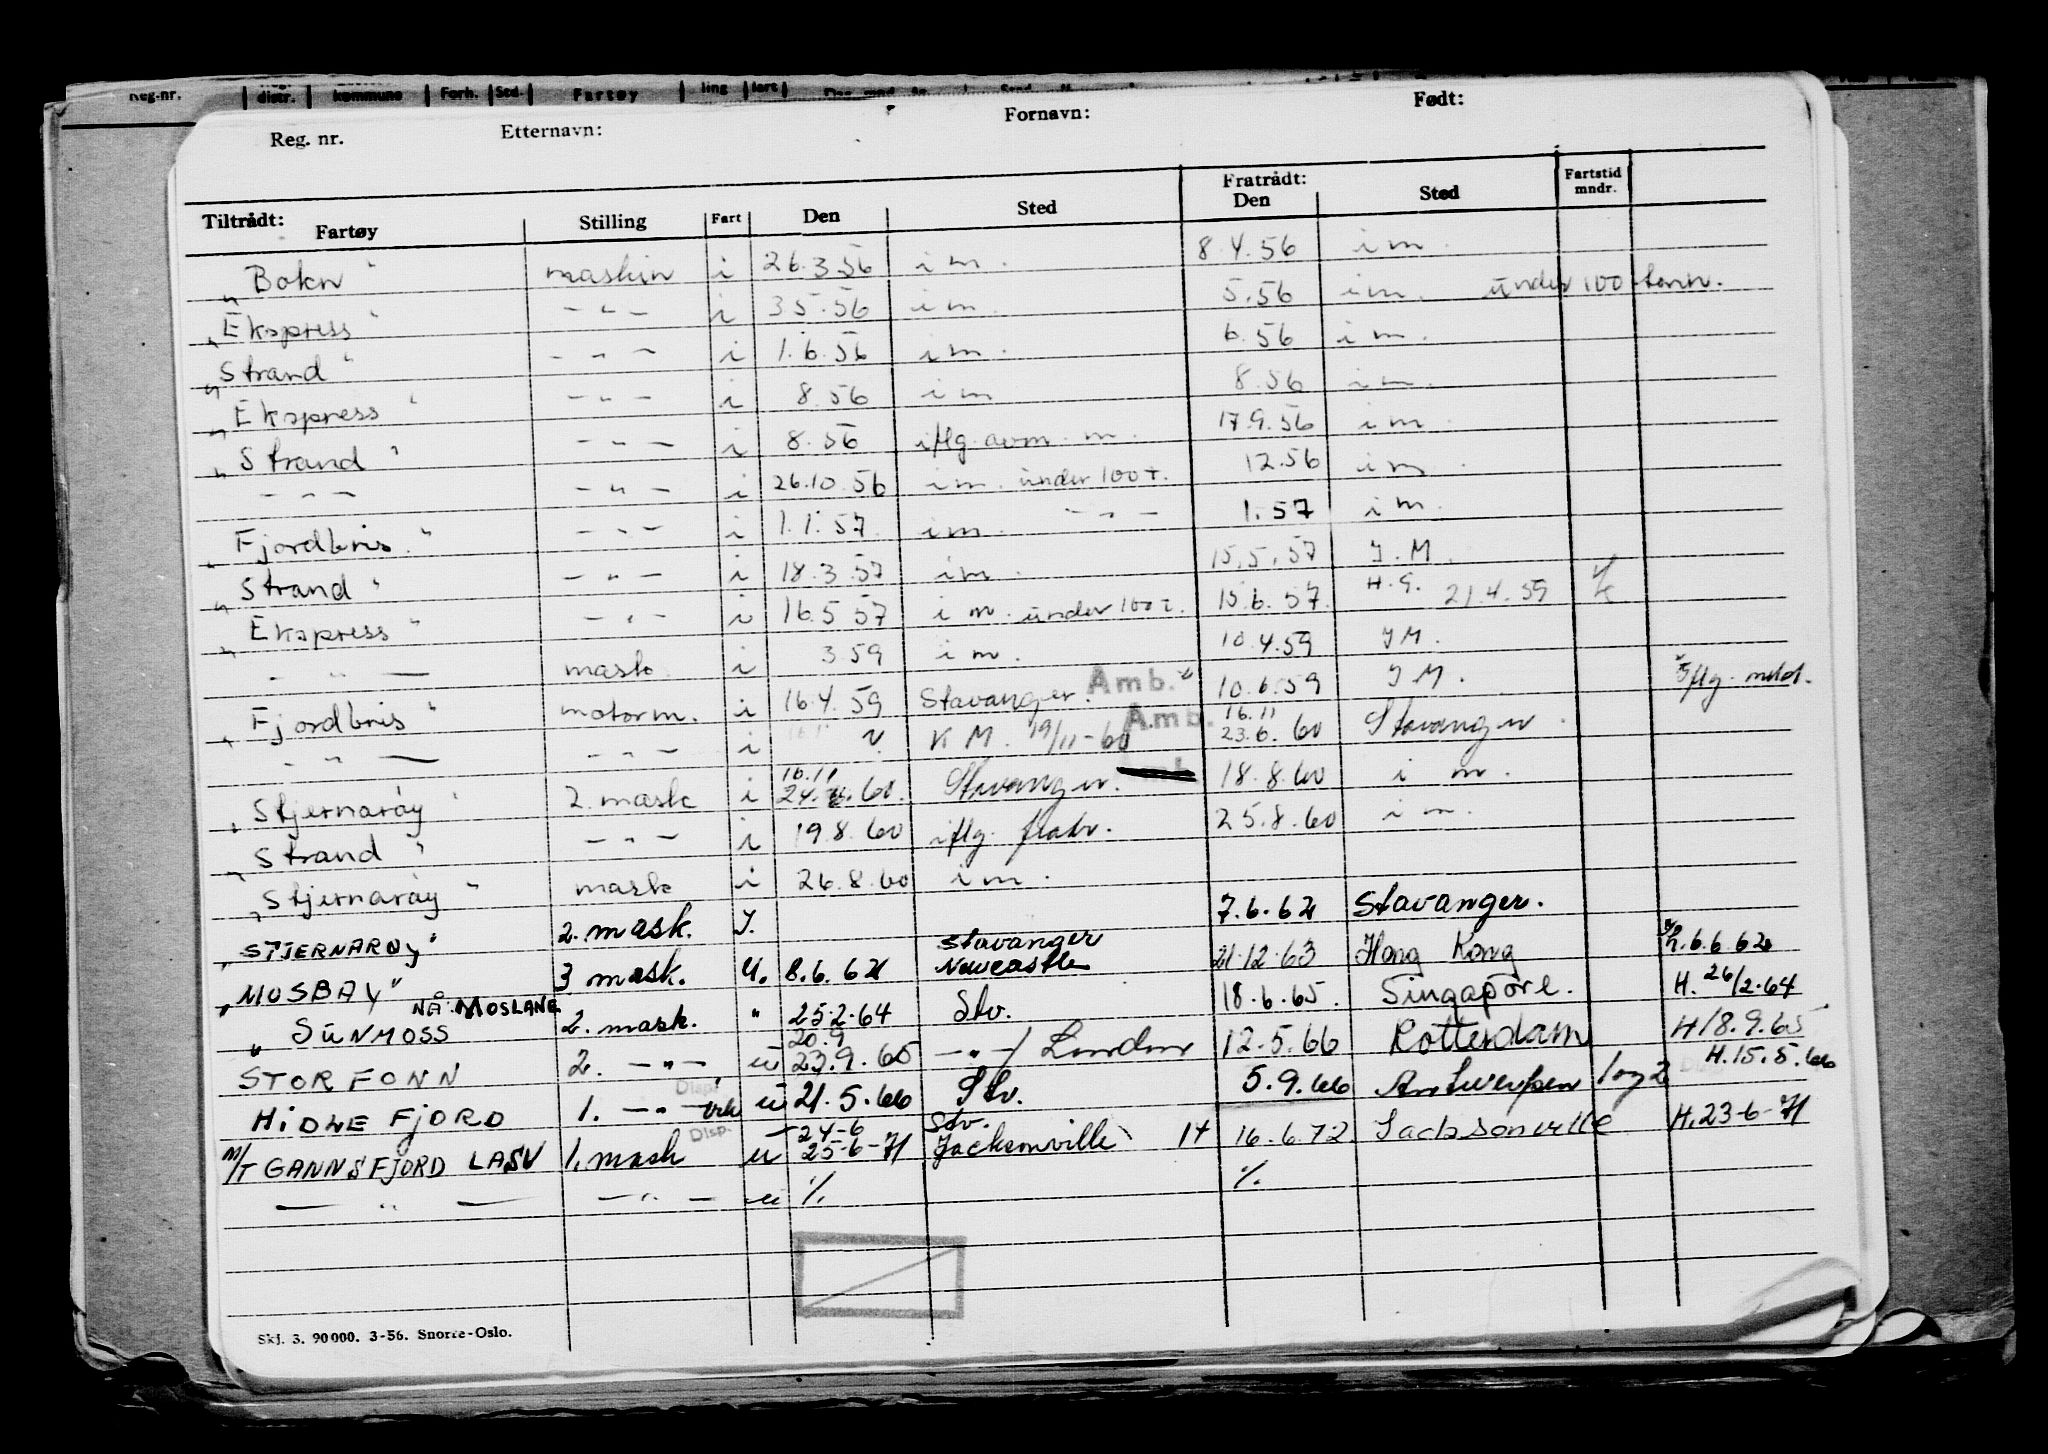 Reg. nr. Etternavn: Fornavn: Født:
Tiltrådt: Fratrådt:
Fartøy Stilling Fart Den Sted Den Sted Fartstid mndr.
"Bokn" maskin i 26.3.56 i m. 8.4.56 i m.
"Ekspress" - " - i 3.5.56 i m. 5.56 i m. under 100 tonn.
"Strand" - " - i 1.6.56 i m. 6.56 i m.
"Ekspress" - " - i 8.56 i m 8.56 i m.
"Strand" - " - i 8.56 iflg. avm. m. 17.9.56 i m.
- " - - " - i 26.10.56 i m. under 100 t. 12.56 i m.
"Fjordbris" - " - i 1.1.57 i m. - " - 1.57 i m.
"Strand" - " - i 18.3.57 i m. 15.5.57 J.M.
"Ekspress" - " - i 16.5.57 i m. under 100 t. 15.6.57 H.G. 21.4.59
- " - mask. i 3.59 i m. 10.4.59 J M.
"Fjordbris" motorm. i 16.4.59 Stavanger. Amb. 10.6.59 J M. iflg. mld.
- " - - " - i K M. 19/11-60 Amb. 16.11 23.6.60 Stavanger.
"Stjernarøy" 2. mask i 16.11 24.6.60. Stavanger. 18.8.60 i m.
"Strand" - " - i 19.8.60 iflg. fratr. 25.8.60 i m.
"Stjernarøy" mask i 26.8.60 i m.
"STJERNARØY" 2. mask. J. 7.6.62 Stavanger.
"MOSBAY" 3 mask. U. 8.6.62 Stavanger Newcastle 21.12.63 Hong Kong 6.6.62
" SUNMOSS NÅ. MOSLANE 2. mask. " 25.2.64 Stv. 18.6.65. Singapore. H. 26/2.64
STORFONN 2. - " - u 20.9 23.9.65 - " - / London 12.5.66 Rotterdam H 18.9.65
HIDLEFJORD 1. - " - Disp. u 21.5.66 Stv. 5.9.66 Antwerpen 1 og 2 H.15.5.66
M/T GANNSFJORD LASV 1. mask Disp. u 24-6 25-6-71 Stv. Jacksonville 1+ 16.6.72 Jacksonville H.23-6-71
- " - - " - u %. %.
Skj. 3. 90 000. 3-56. Snorre-Oslo.